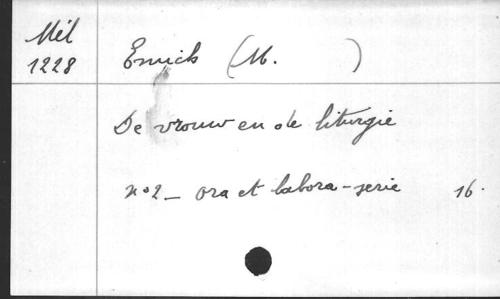 Mél
1228
Emich (M. )
De vrouw en de liturgie
n°2 - ora et labora - serie 16.